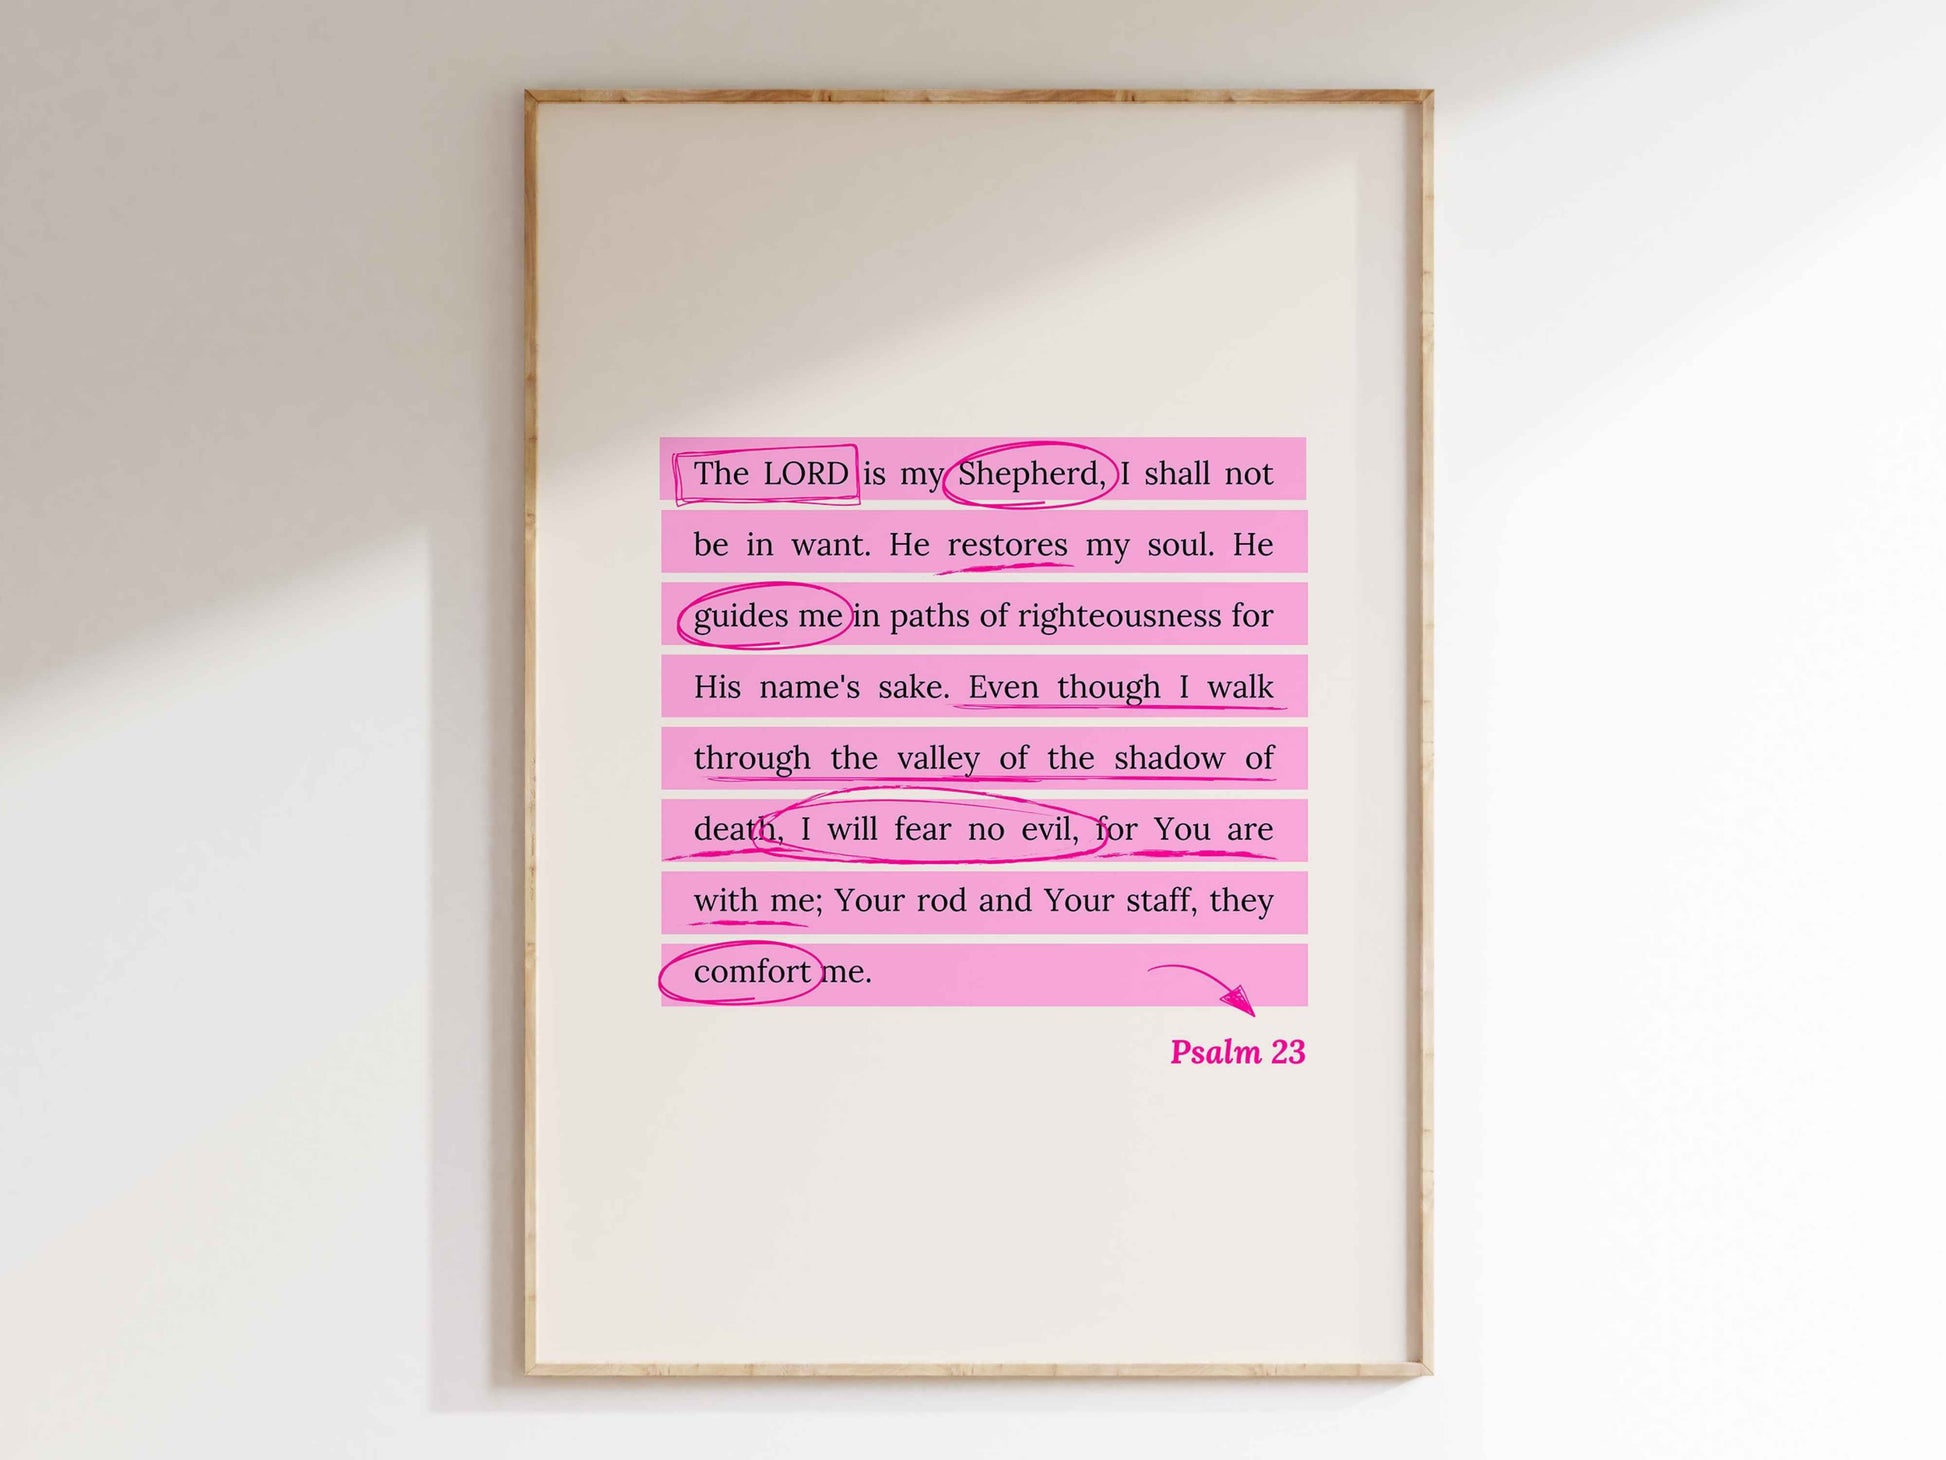 The LORD is my Shepherd, I shall not
be in want. He restores my soul. He
guides me in paths of righteousness for
His name's sake. Even though I walk
through the valley of the shadow of
death, I will fear no evil, for You are
with me; Your rod and Your staff, they
comfort me.
Psalm 23